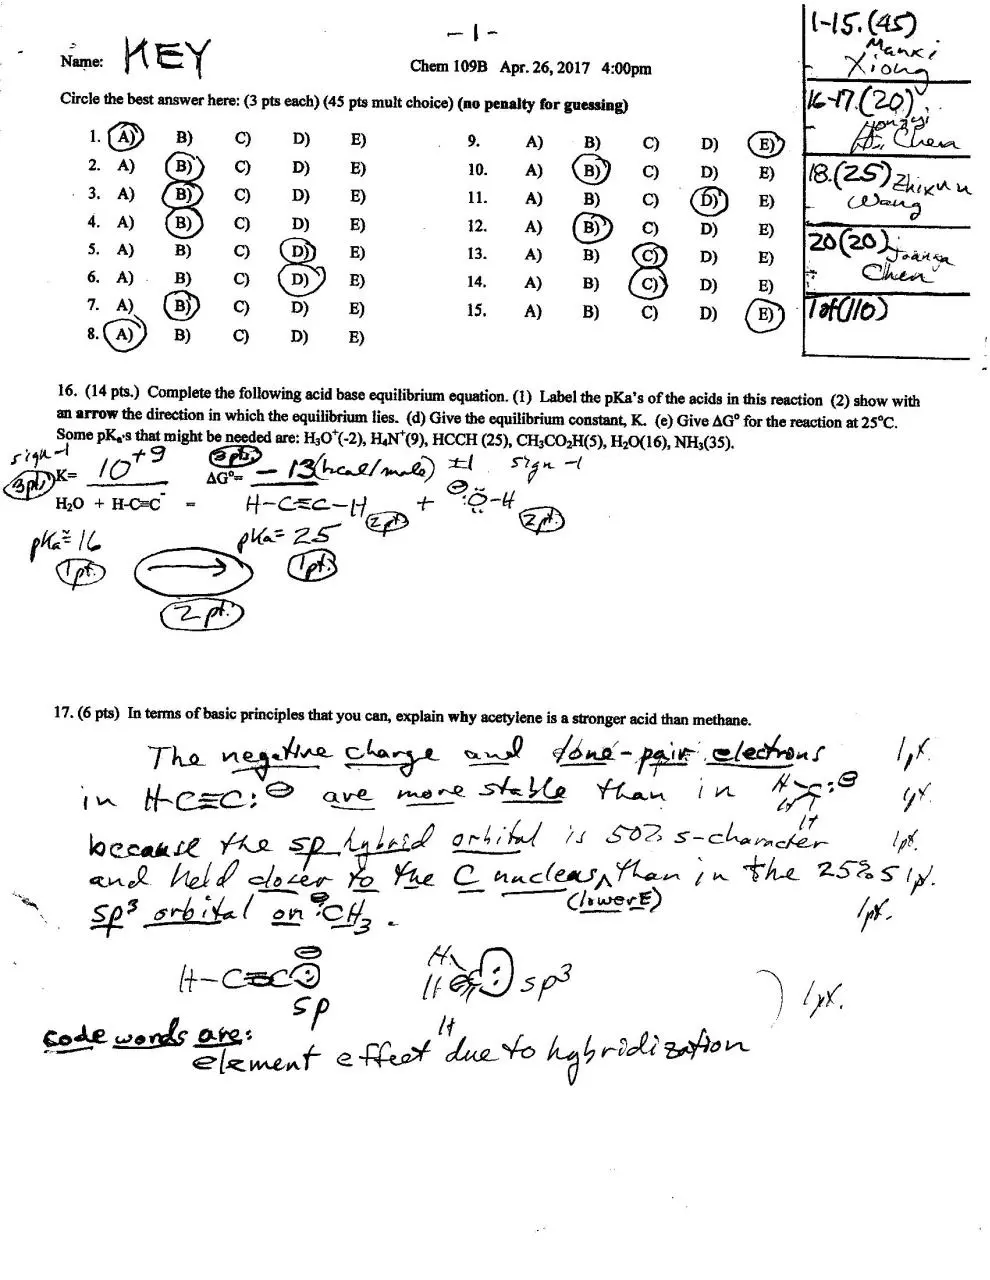 - 1 -
Name: KEY
Chem 109B Apr. 26, 2017 4:00pm
1-15. (45)
Manxi
Xiong
16-17. (20)
Chen
18. (25) Zhixun
Wang
20 (20)
Chen
Tot (110)
Circle the best answer here: (3 pts each) (45 pts mult choice) (no penalty for guessing)
1. A) B) C) D) E)
2. A) B) C) D) E)
3. A) B) C) D) E)
4. A) B) C) D) E)
5. A) B) C) D) E)
6. A) B) C) D) E)
7. A) B) C) D) E)
8. A) B) C) D) E)
9. A) B) C) D) E)
10. A) B) C) D) E)
11. A) B) C) D) E)
12. A) B) C) D) E)
13. A) B) C) D) E)
14. A) B) C) D) E)
15. A) B) C) D) E)
16. (14 pts.) Complete the following acid base equilibrium equation. (1) Label the pKa's of the acids in this reaction (2) show with
an arrow the direction in which the equilibrium lies. (d) Give the equilibrium constant, K. (e) Give ΔG° for the reaction at 25°C.
Some pKₐ's that might be needed are: H₃O⁺(-2), H₄N⁺(9), HCCH (25), CH₃CO₂H(5), H₂O(16), NH₃(35).
sign -1
3pt. K= 10⁺⁹ 3pt. ΔG°= - 13 (kcal/mole) ±1 sign -1
H₂O + H-C≡C⁻ = H-C≡C-H 2pt. + ⊖:Ö-H 2pt.
pKa≈16 pKa=25
1pt. → 1pt.
2 pt.
17. (6 pts) In terms of basic principles that you can, explain why acetylene is a stronger acid than methane.
The negative charge and lone-pair electrons 1pt.
in H-C≡C:⊖ are more stable than in H-C:⊖ 1pt.
H H
because the sp hybrid orbital is 50% s-character 1pt.
and held closer to the C nucleus, than in the 25% s 1pt.
(lower E)
sp³ orbital on ⊖:CH₃. 1pt.
H-C≡C: ⊖ sp
H H H C : sp³ ) 1pt.
code words are:
element effect due to hybridization